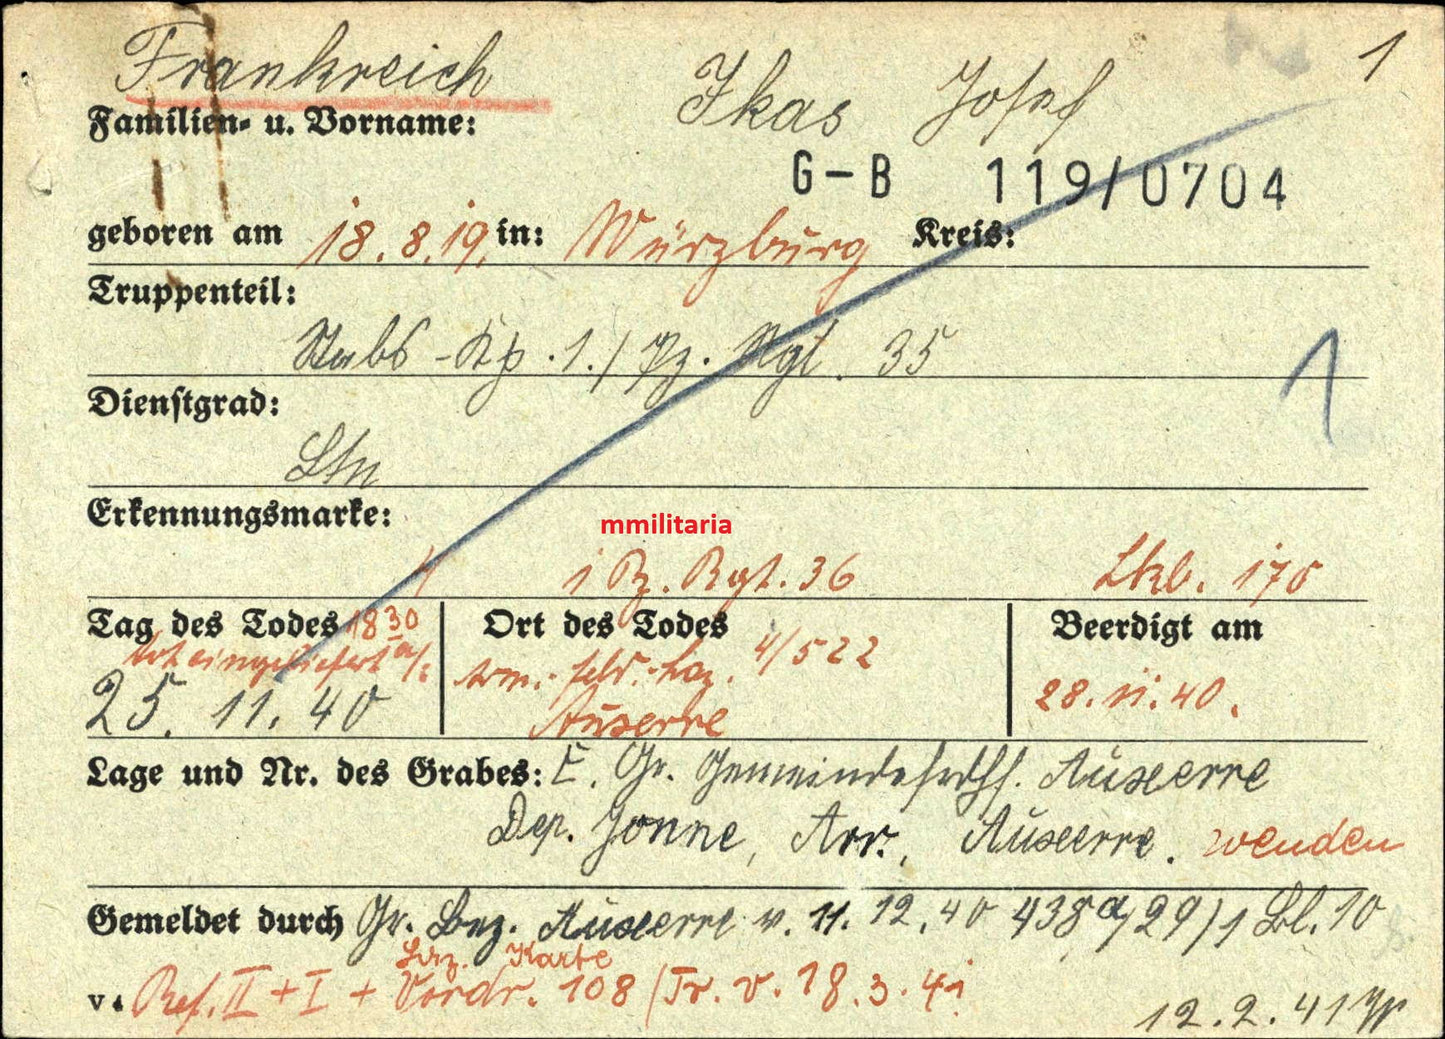 Frankreich
1
Familien- u. Vorname:
Ikas Josef
G-B 119/0704
geboren am 18.8.19. in: Würzburg Kreis:
Truppenteil:
Stabs-Kp. 1./Pz. Rgt. 35
1
Dienstgrad:
Ltn
Erkennungsmarke:
mmilitaria
1 Pz. Rgt. 36
Tag des Todes 18 30
Ort des Todes
Beerdigt am
tot eingeliefert
25. 11. 40
4/522
Auxerre
28.11.40.
Lage und Nr. des Grabes: E. Gr. Gemeindefrdhf. Auxerre
Dep. Yonne, Arr., Auxerre. wenden
Gemeldet durch Gr. Auxerre v. 11. 12. 40 438 Bl. 10
Karte
v. Ref. II + I + Vordr. 108 / Tr. v. 18.3.41
12.2.41